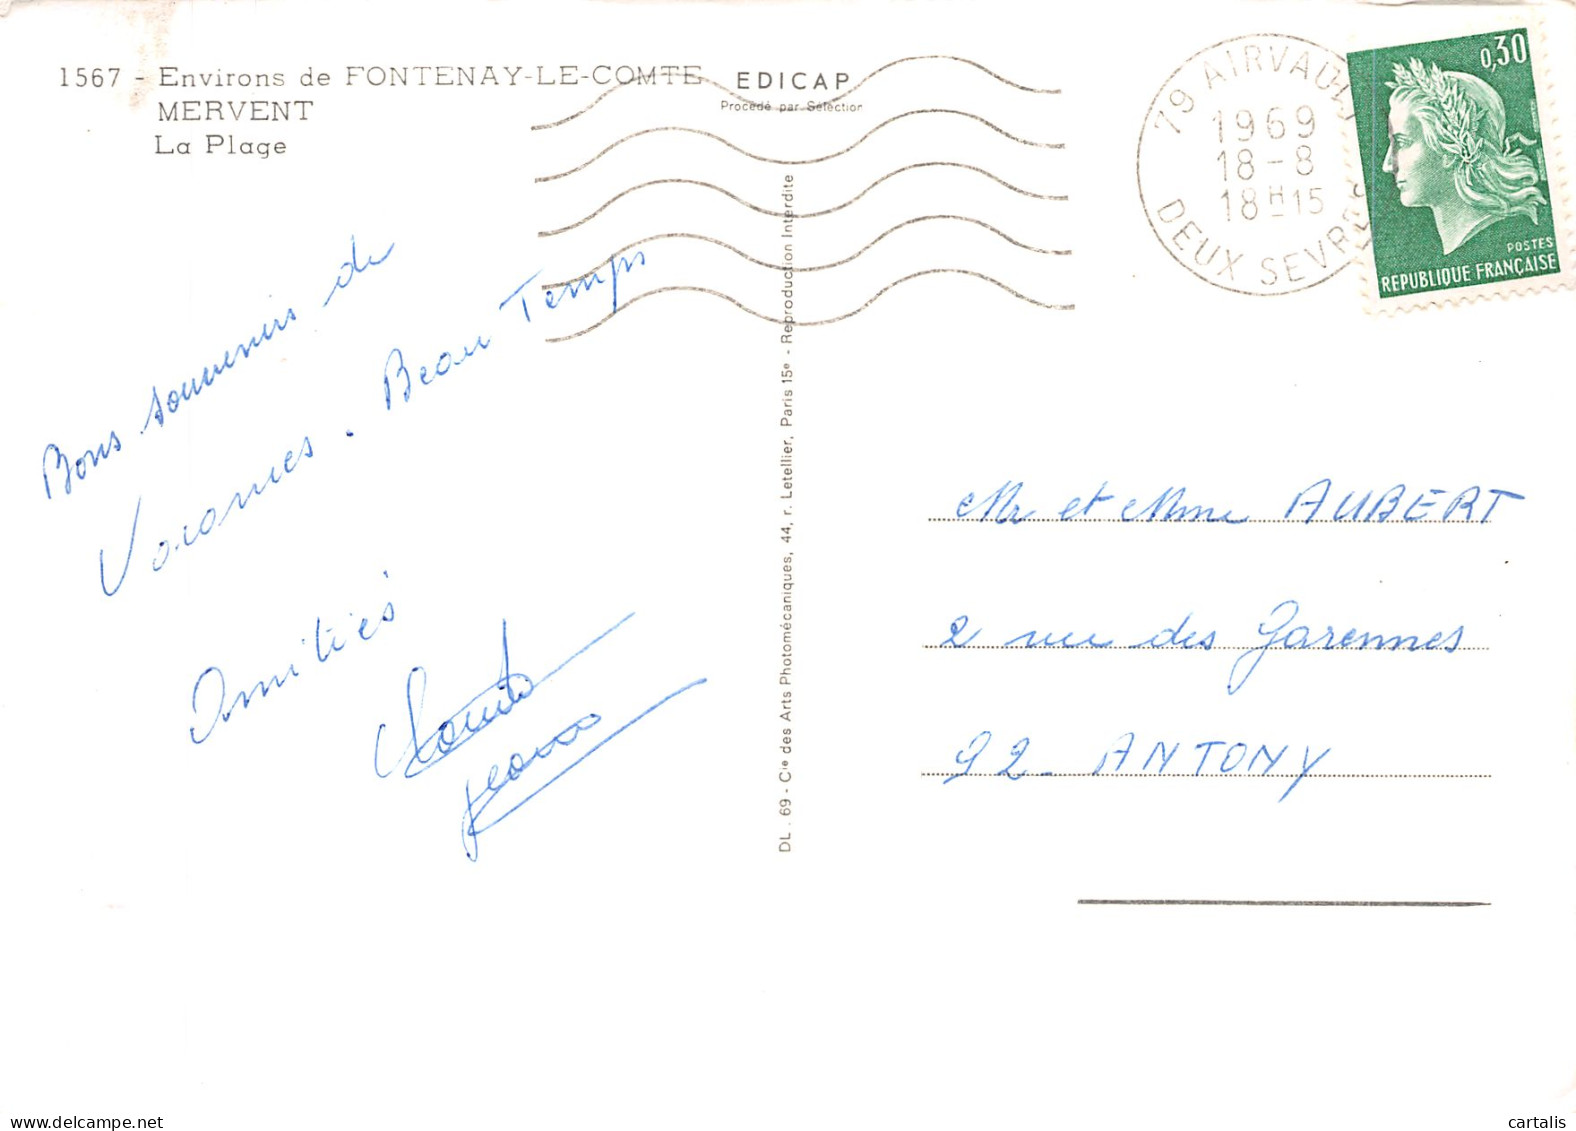 1567 - Environs de FONTENAY-LE-COMTE
MERVENT
La Plage
EDICAP
Procédé par Sélection
79 AIRVAULT
1969
18-8
18H15
DEUX SEVRES
0,30
POSTES
REPUBLIQUE FRANÇAISE
Bons souvenirs de
Vacances. Beau Temps
Amitiés
DL. 69 - Cie des Arts Photomécaniques, 44, r. Letellier, Paris 15e - Reproduction Interdite
Mr et Mme AUBERT
2 rue des Garennes
92 - ANTONY
cartalis